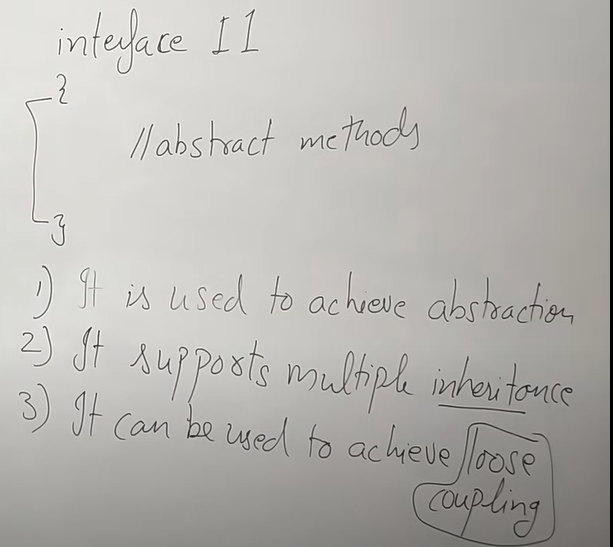 interface I1
{
//abstract methods
}
1) It is used to achieve abstraction
2) It supports multiple inheritance
3) It can be used to achieve loose
coupling